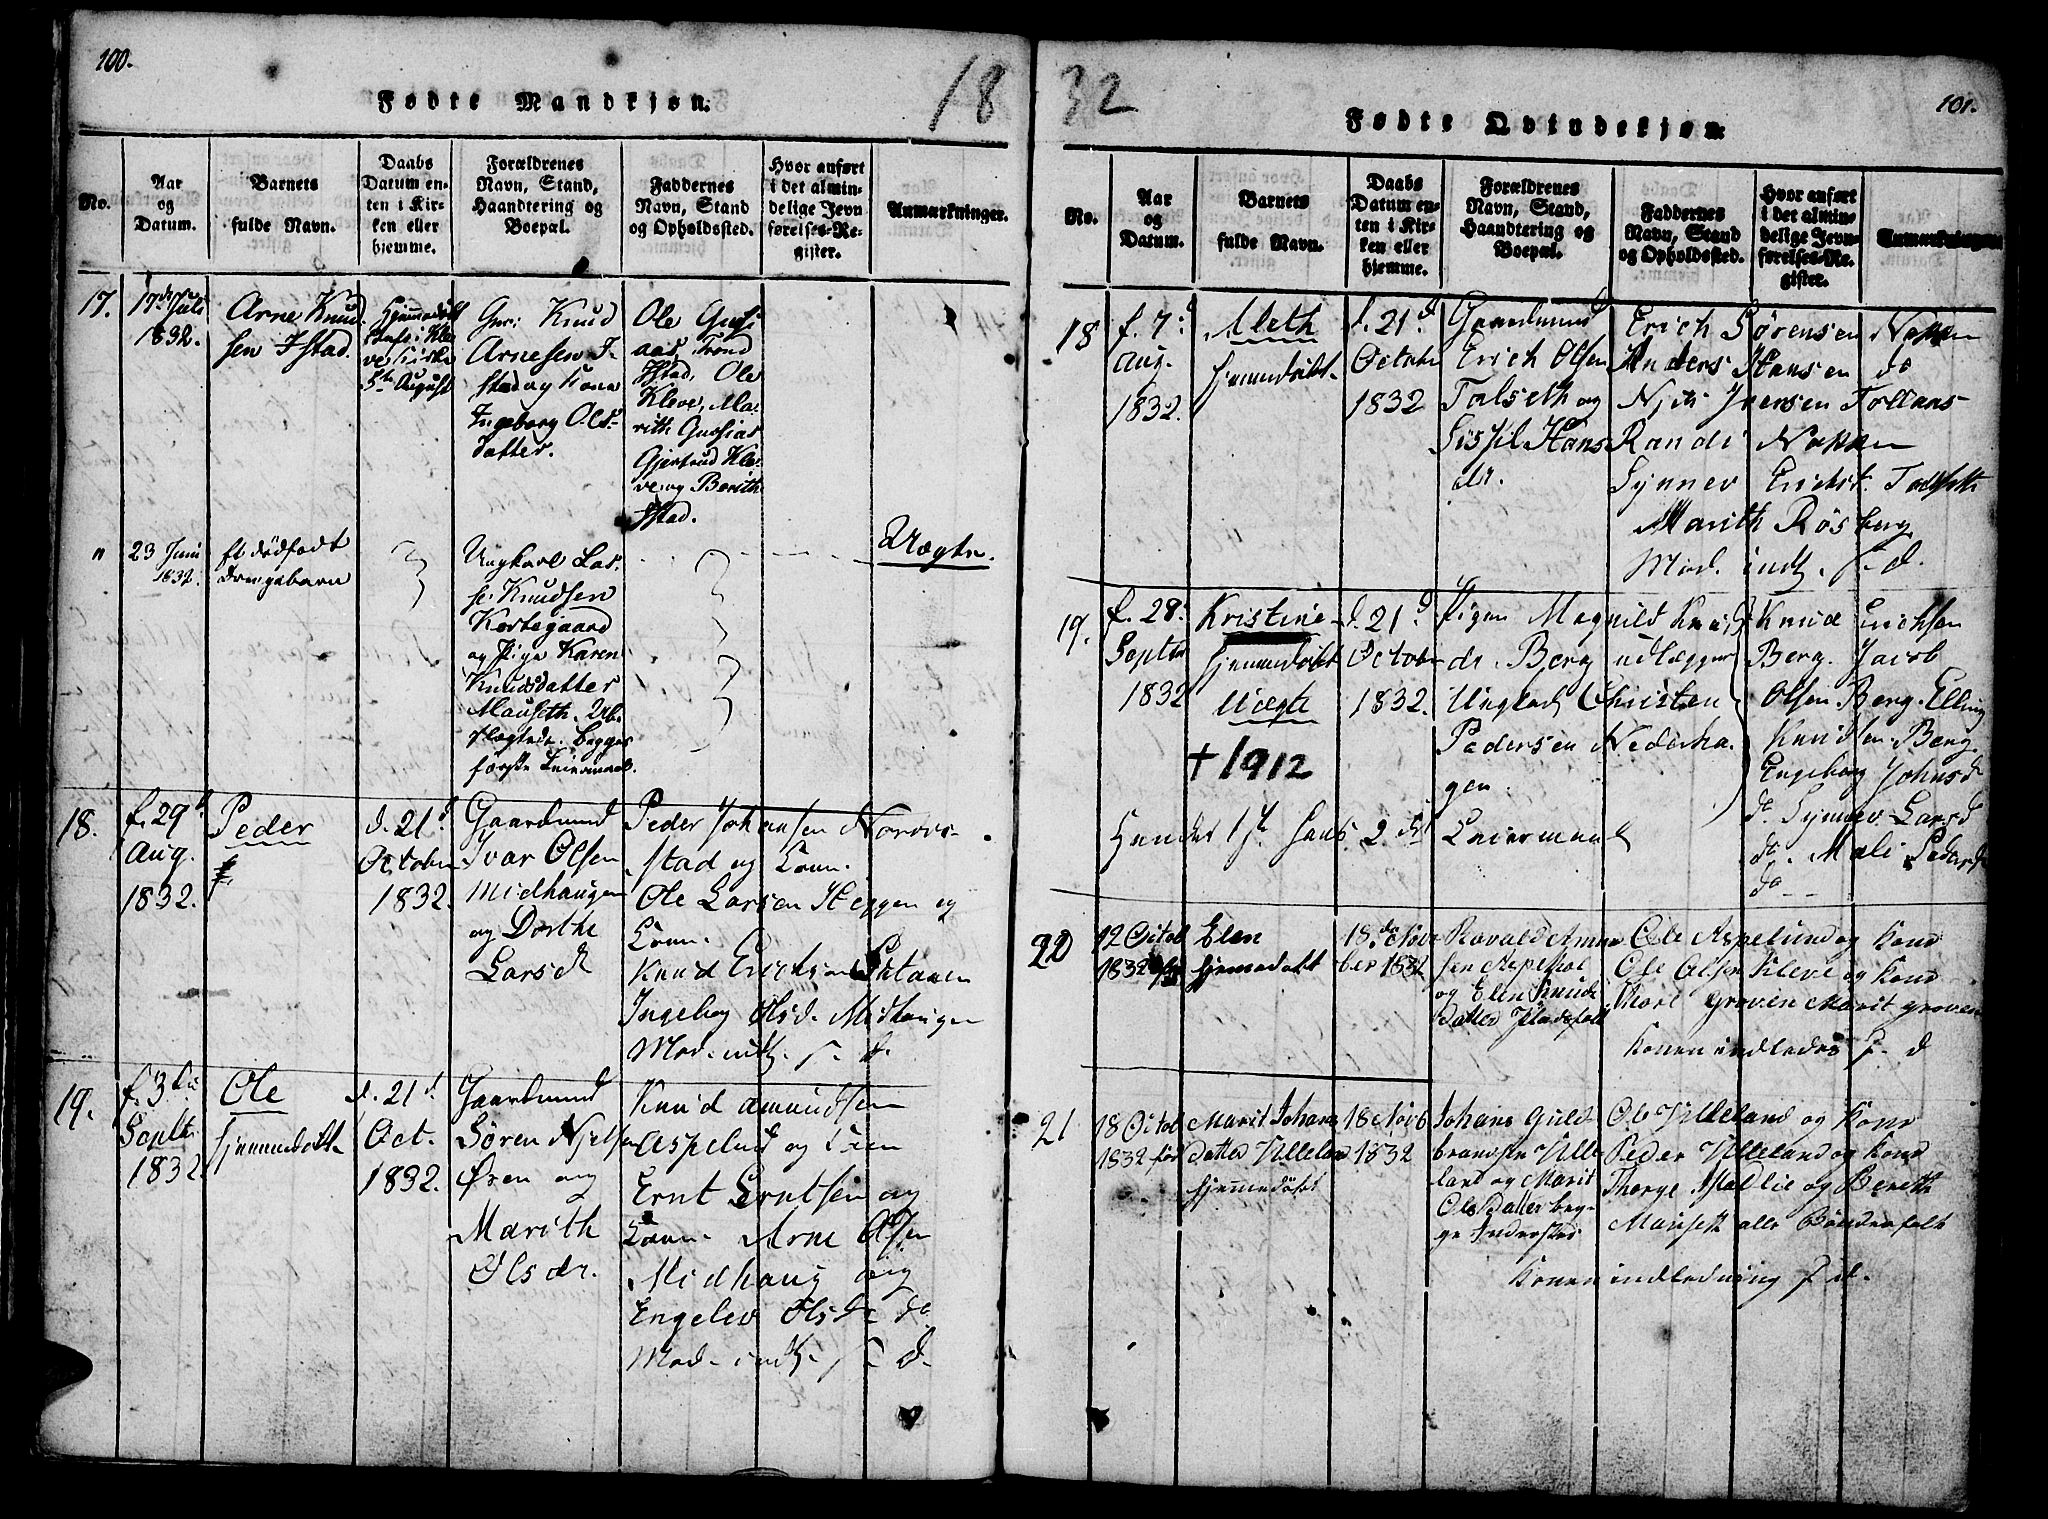 100.
18
Fødte Mandkjøn.
No.
Aar
og
Datum.
Barnets
fulde Navn.
Daabs
Datum en-
ten i Kir-
ken eller
hjemme.
Forældrenes
Navn, Stand,
Haandtering og
Boepæl.
Faddernes
Navn, Stand
og Opholdssted.
Hvor anført
i det almin-
delige Jevn
førelses-Re-
gister.
Anmærkninger.
17.
17de Juli
1832.
Arne Knud
sen Istad.
Hjemmedøbt
Kle
ve Kirke
5te August
Knud
Arnesen I-
stad og Kone
Ingeborg Ols-
datter.
Ole Gusi
aas, Trond
Istad, Ole
Kleve, Ma-
rith Gusias
Gjertrud Kle-
ve og Berith
Istad.
"
23 Juni
1832.
et dødfødt
Drengebarn
Ungkarl Las-
se Knudsen
Kortgaard
og Pige Karen
Knudsdatter
Mauseth. Ub.
slægtede. Begges
første Leiermaal.
Uægte.
18.
f. 29d
Aug.
1832.
Peder
d. 21d
October
1832.
Gaardmand
Ivar Olsen
Midhaugen
og Dorthe
Larsd
Peder Johansen Norvi-
stad og Kone.
Ole Larsen Heggen og
Kone.
Knud Erichsen
Ingebog Olsd. Midhaugen
Mod. indl. s. d.
19.
f. 3die
Septr
1832.
Ole
hjemmedøbt
d. 21d
Oct.
1832.
Gaardmand
Søren Njelsen
Øren og
Marith
Olsdr.
Knud Amundsen
Aspelund og Kone
Ernt Erntsen og
Kone. Arne Olsen
Midhaug og
Engelev Olsdr do
Mod. indl. s. d.
32
101.
Fødte Qvindekjøn.
No.
Aar
og
Datum.
Barnets
fulde Navn.
Daabs
Datum en-
ten i Kir-
ken eller
hjemme.
Forældrenes
Navn, Stand,
Haandtering og
Boepæl.
Faddernes
Navn, Stand
og Opholdssted.
Hvor anført
i det almin-
delige Jevn-
førelses-Re-
gister.
Anmærkninger.
18
f. 7d
Aug.
1832.
Aleth
hjemmedøbt.
d. 21d
October
1832
Gaardmand
Erich Olsen
Talseth og
Sissil Hans
dr.
Erich Sørensen Nakken
Anders Hansen do
Njels Iversen Tollaas
Randi Nakken
Synnev Erichsd. Talseth
Marith Røsberg
Mod. indl. s. d.
19.
f. 28d
Septbr
1832
Kristine
hjemmedøbt
Uægte
† 1912
d. 21d
October
1832.
Pigen Magnild Knuds
dr. Berg udlægger
Ungkarl Christen
Pedersen Nederha
gen.
Hendes 1ste hans 2det Leiermaal
Knud Erichsen
Berg. Jacob
Olsen Berg. Elling
Knudsen Berg
Engeborg Johnsd
do. Synnev Larsd
do. Mali Pedersd
do
20
12 Octob
1832
Elen
hjemmedøbt
18de Novem
ber 1832
Ravald Amun
sen Aspehol
og Elen Knuds
datter
Ole Aspelund og Kone
Ole Olsen Kleve og Kone
Tharl Groven Marit Groven
Konen indledes s. d
21
18 Octob
1832 fød
Marit Johans
datter Ulleland
hjemmedøbt
18 Novb
1832
Johans Guld-
brandsen Ulle
land og Marit
Ols Datter beg-
ge Inderster
Ole Ulleland og Kone
Peder Ulleland og Kone
Thorge Mælie og Bereth
Mauseth alle Bønderfolk
Konen indledning s. d.